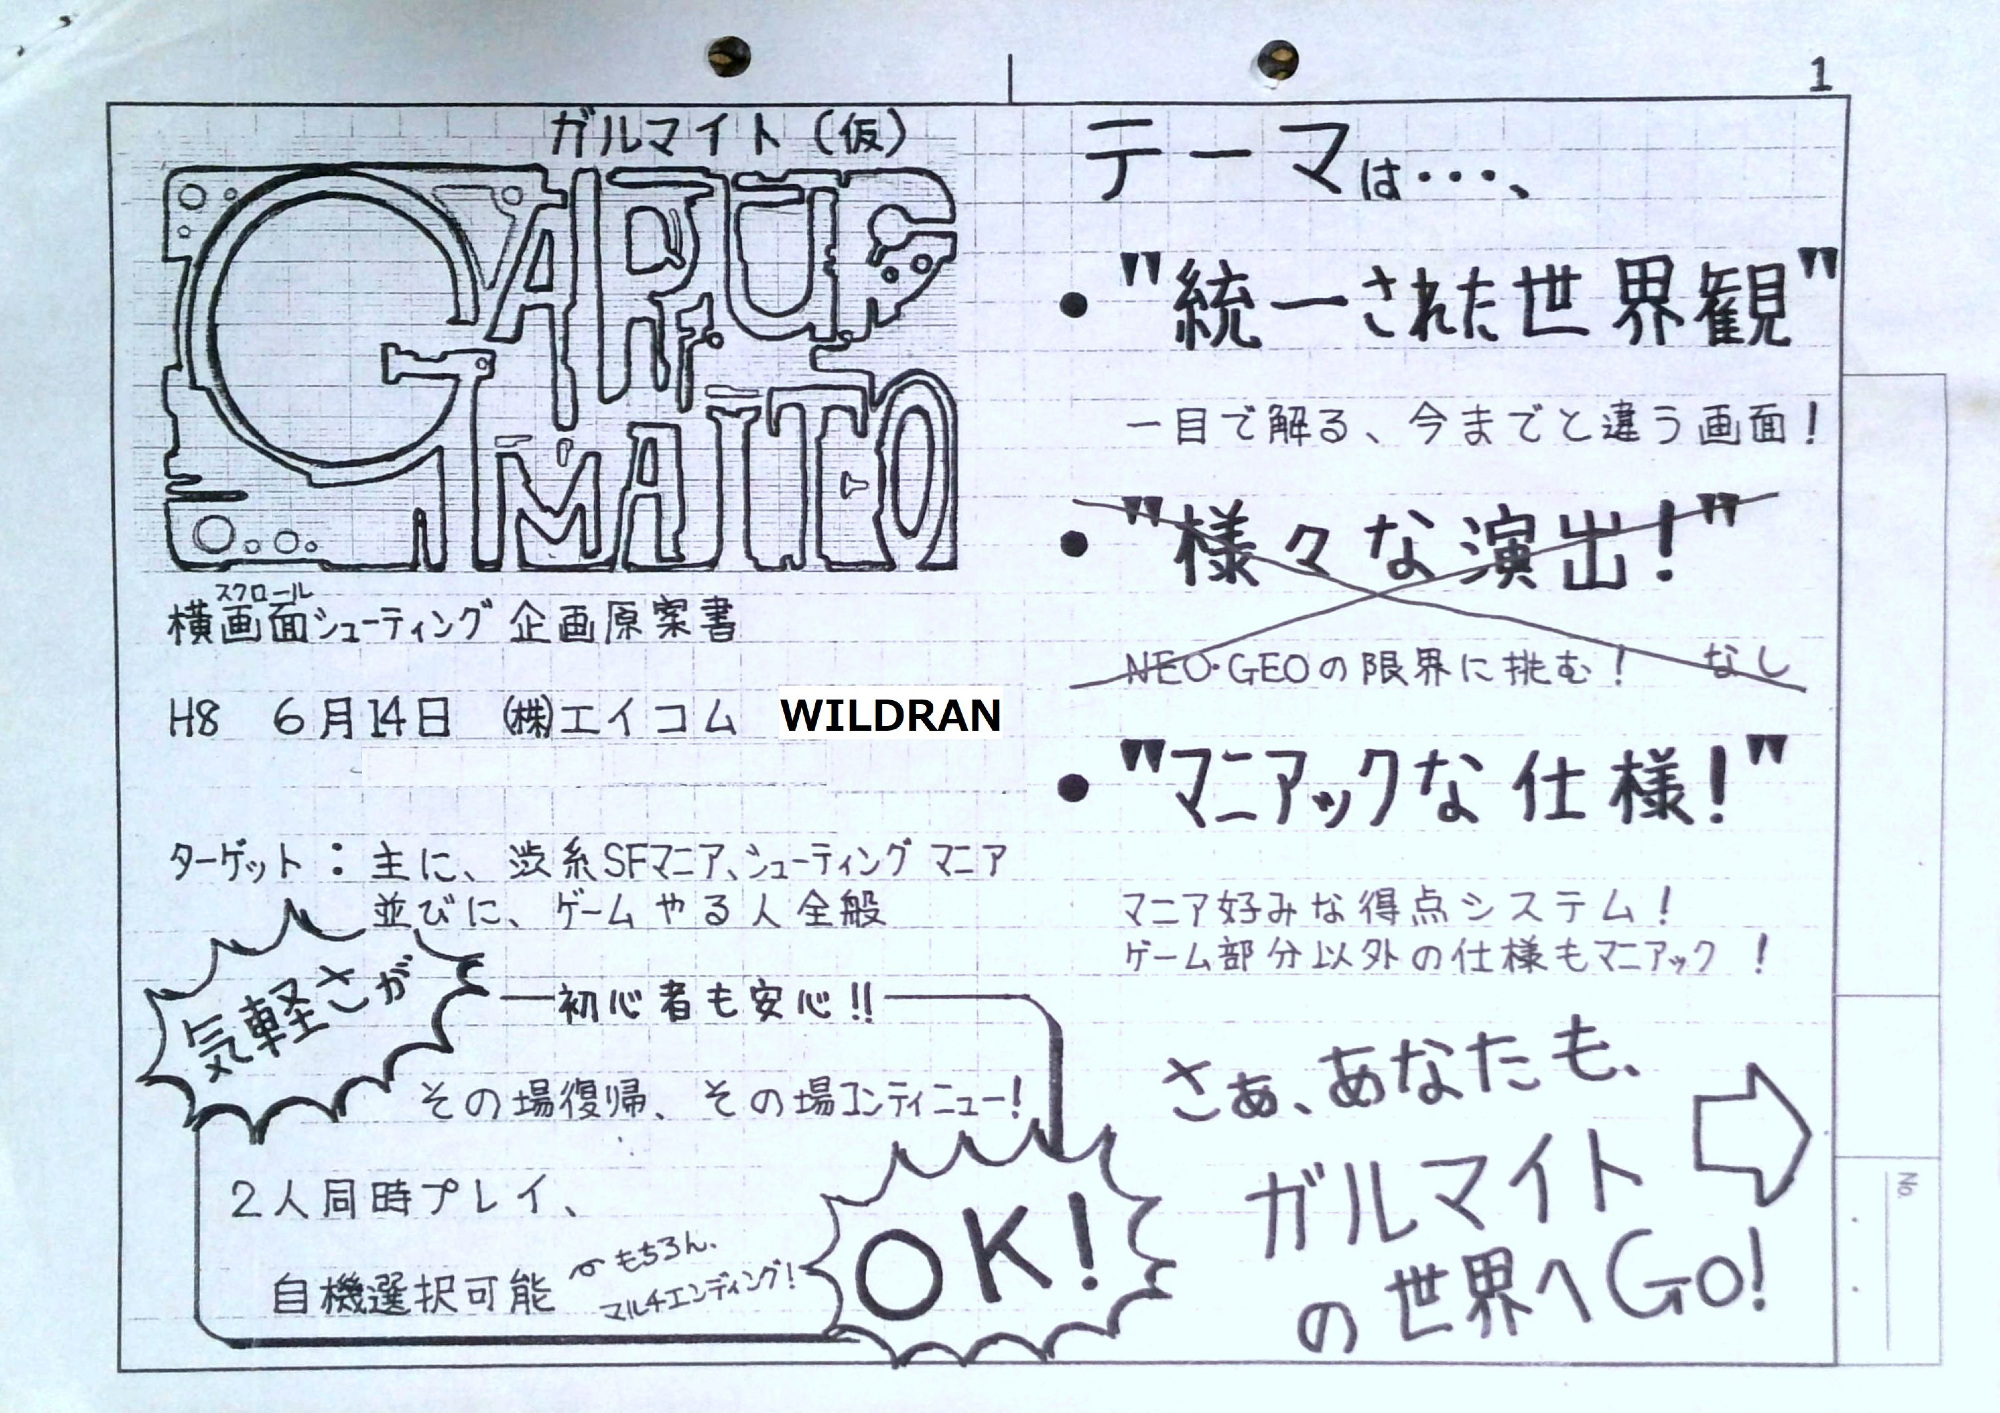 1
ガルマイト(仮)
GARUS
MAITO
スクロール
横画面シューティング 企画原案書
H8 6月14日 ㈱エイコム WILDRAN
ターゲット:主に、渋系SFマニア、シューティングマニア
並びに、ゲームやる人全般
気軽さが
初心者も安心!!
その場復帰、その場コンティニュー!
2人同時プレイ、
自機選択可能
もちろん、
マルチエンディング!
OK!
テーマは・・・、
・"統一された世界観"
一目で解る、今までと違う画面!
・"様々な演出!"
NEO・GEOの限界に挑む! なし
・"マニアックな仕様!"
マニア好みな得点システム!
ゲーム部分以外の仕様もマニアック!
さぁ、あなたも、
ガルマイト
の世界へGO!
No.